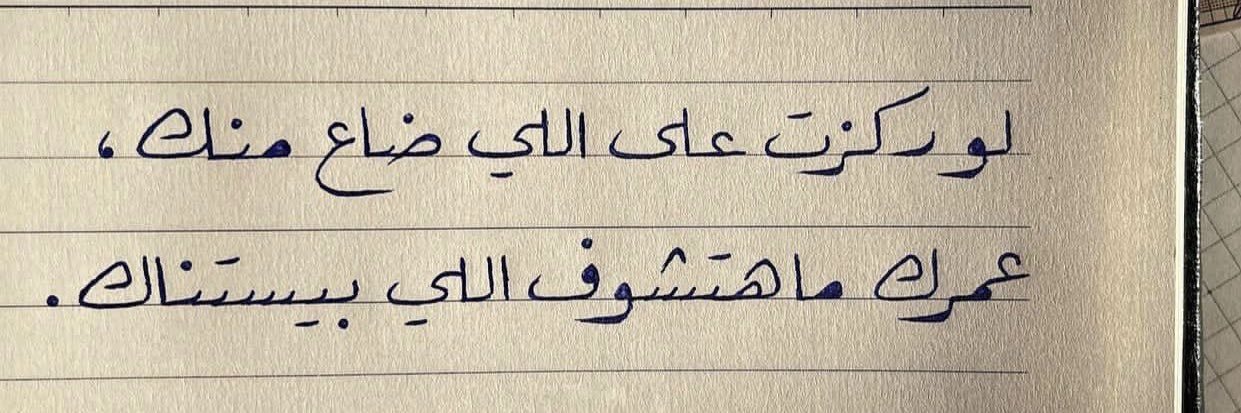 لو ركزت على اللي ضاع منك،
عمرك ما هتشوف اللي بيستناك.